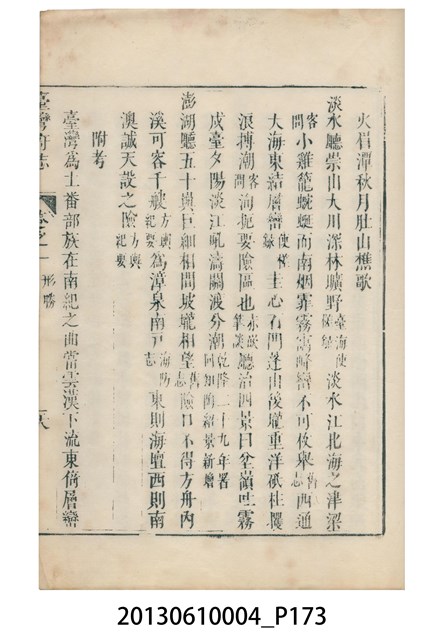 火山潭秋月肚山樵歌
淡水廳崇山大川深林曠野臺海使槎錄淡水江北海之津梁
客問小雞籠蜿蜒而南烟霏霧靄峰巒不可枚舉舊志西通
大海東結層巒使槎錄圭心石門蓬山後壠重洋砥柱
浪搏潮客問海扼要險區也赤嵌筆談廳治四景曰坌嶺吐霧
戍臺夕陽淡江吼濤關渡分潮乾隆二十九年署同知
澎湖廳五十與巨細相間坡壠相望舊志險口不得方舟內
溪可容千艘方輿紀要為漳泉南戶海防志東則海壇西則南
澳誠天設之險方輿紀要
附考
臺灣為土番部族在南紀之曲當雲漢下流東倚層巒
臺灣府志
卷之一
形勝
20130610004_P173